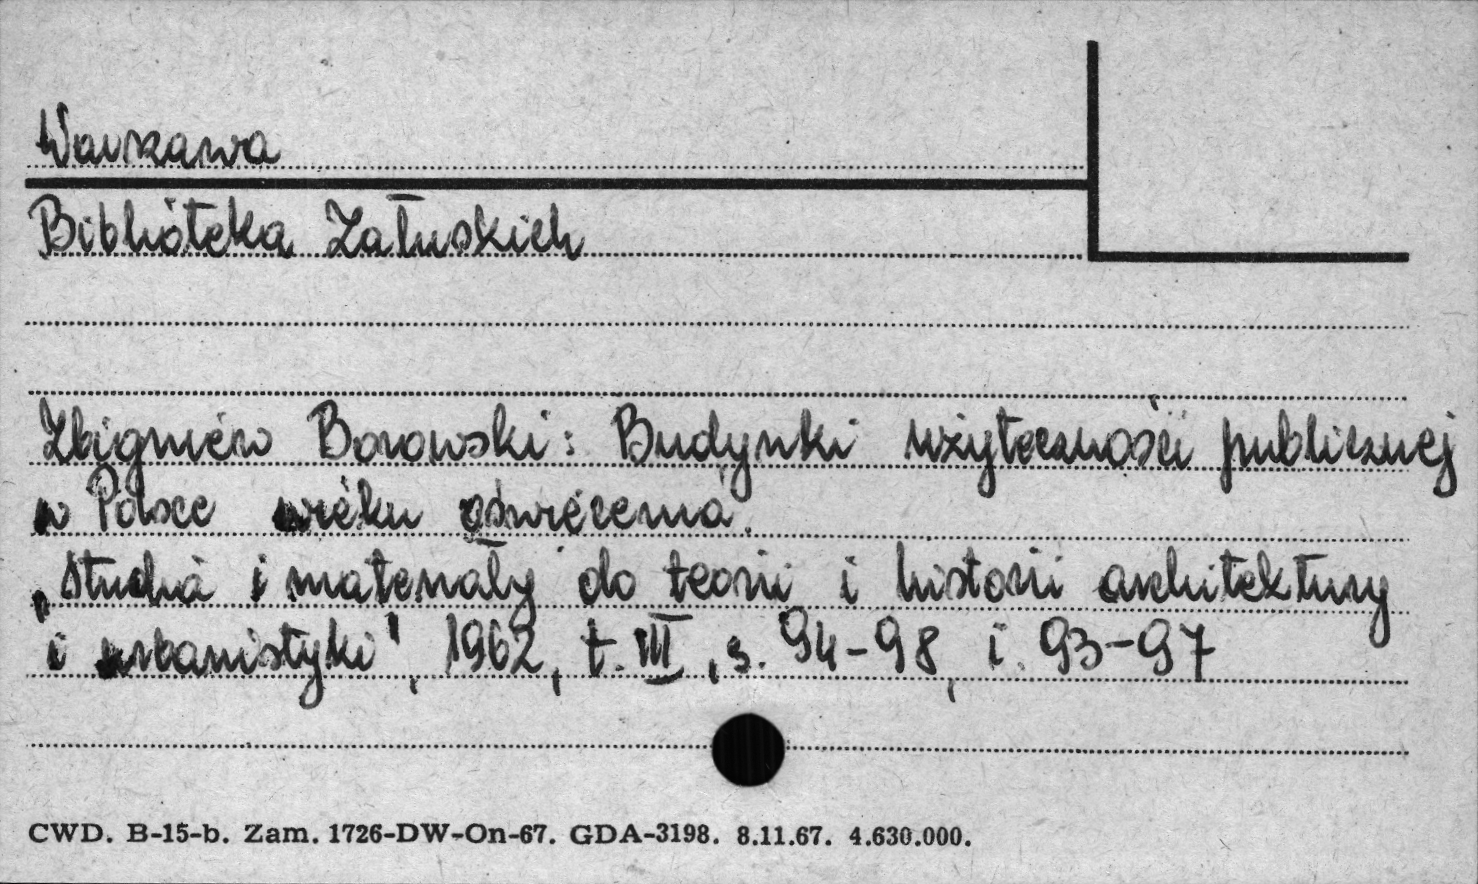 Warszawa
Biblioteka Załuskich
Zbigniew Borowski: Budynki użyteczności publicznej
w Polsce wieku oświecenia.
„Studia i materiały do teorii i historii architektury
i urbanistyki", 1962, t. III, s. 94-98, i. 93-97
CWD. B-15-b. Zam. 1726-DW-On-67. GDA-3198. 8.11.67. 4.630.000.